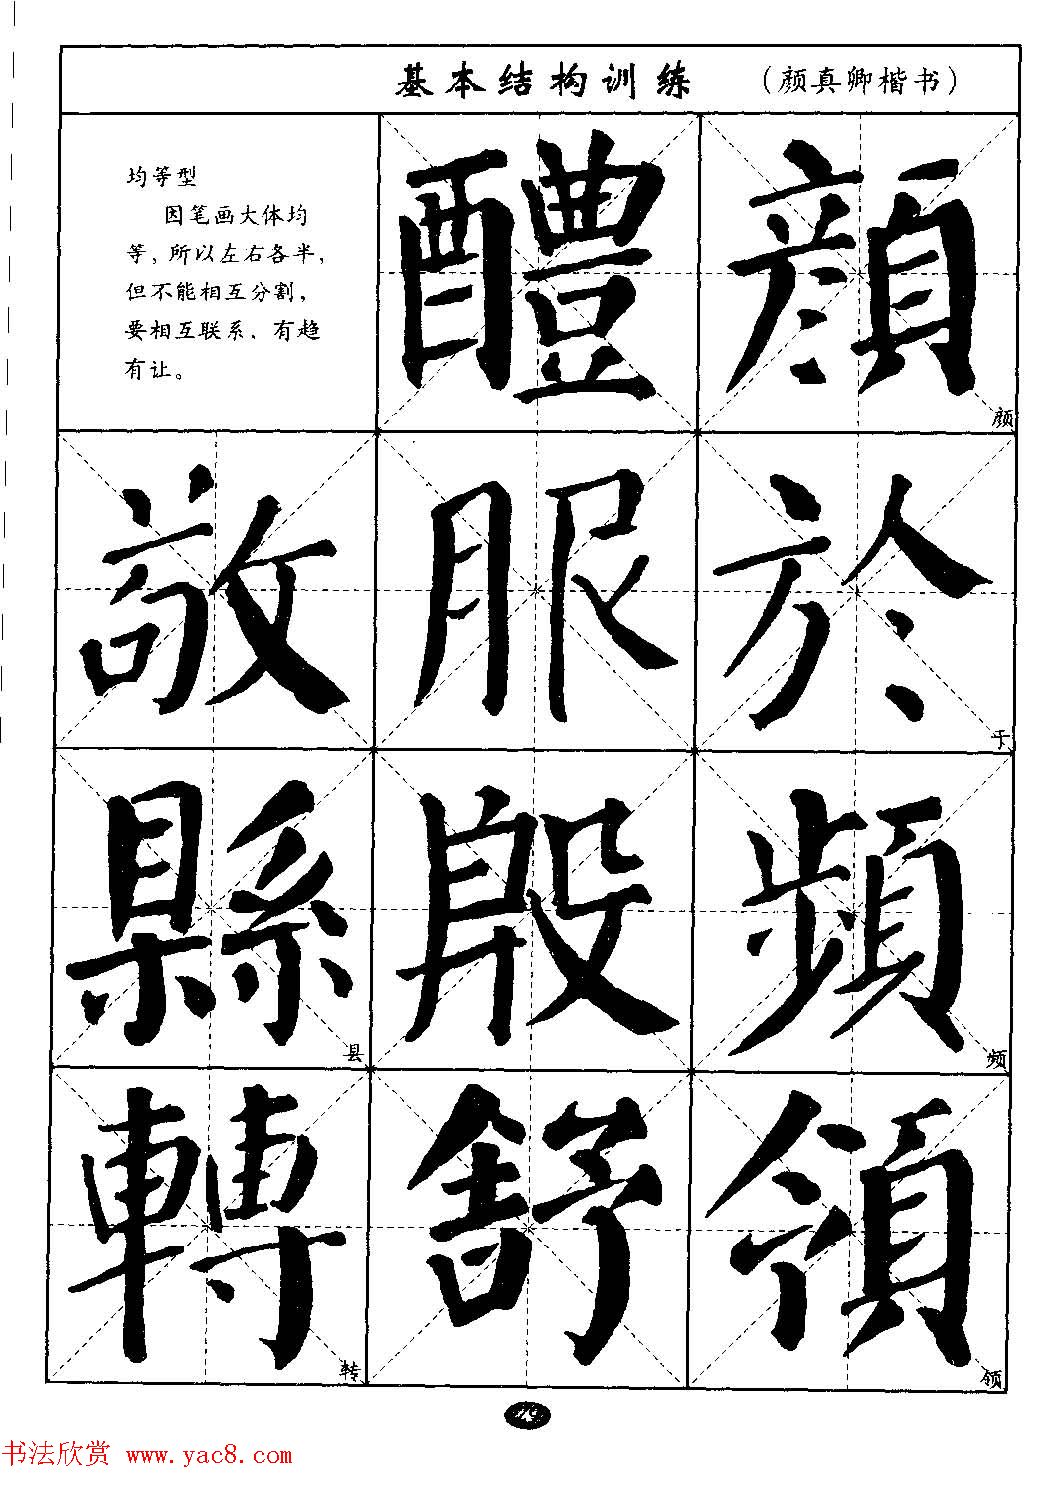 基本结构训练 （颜真卿楷书）
均等型
因笔画大体均
等，所以左右各半，
但不能相互分割，
要相互联系、有趋
有让。
醴 顔
颜
敬 服 於
于
縣 殷 頻
县 频
轉 舒 領
转 领
29
书法欣赏 www.yac8.com